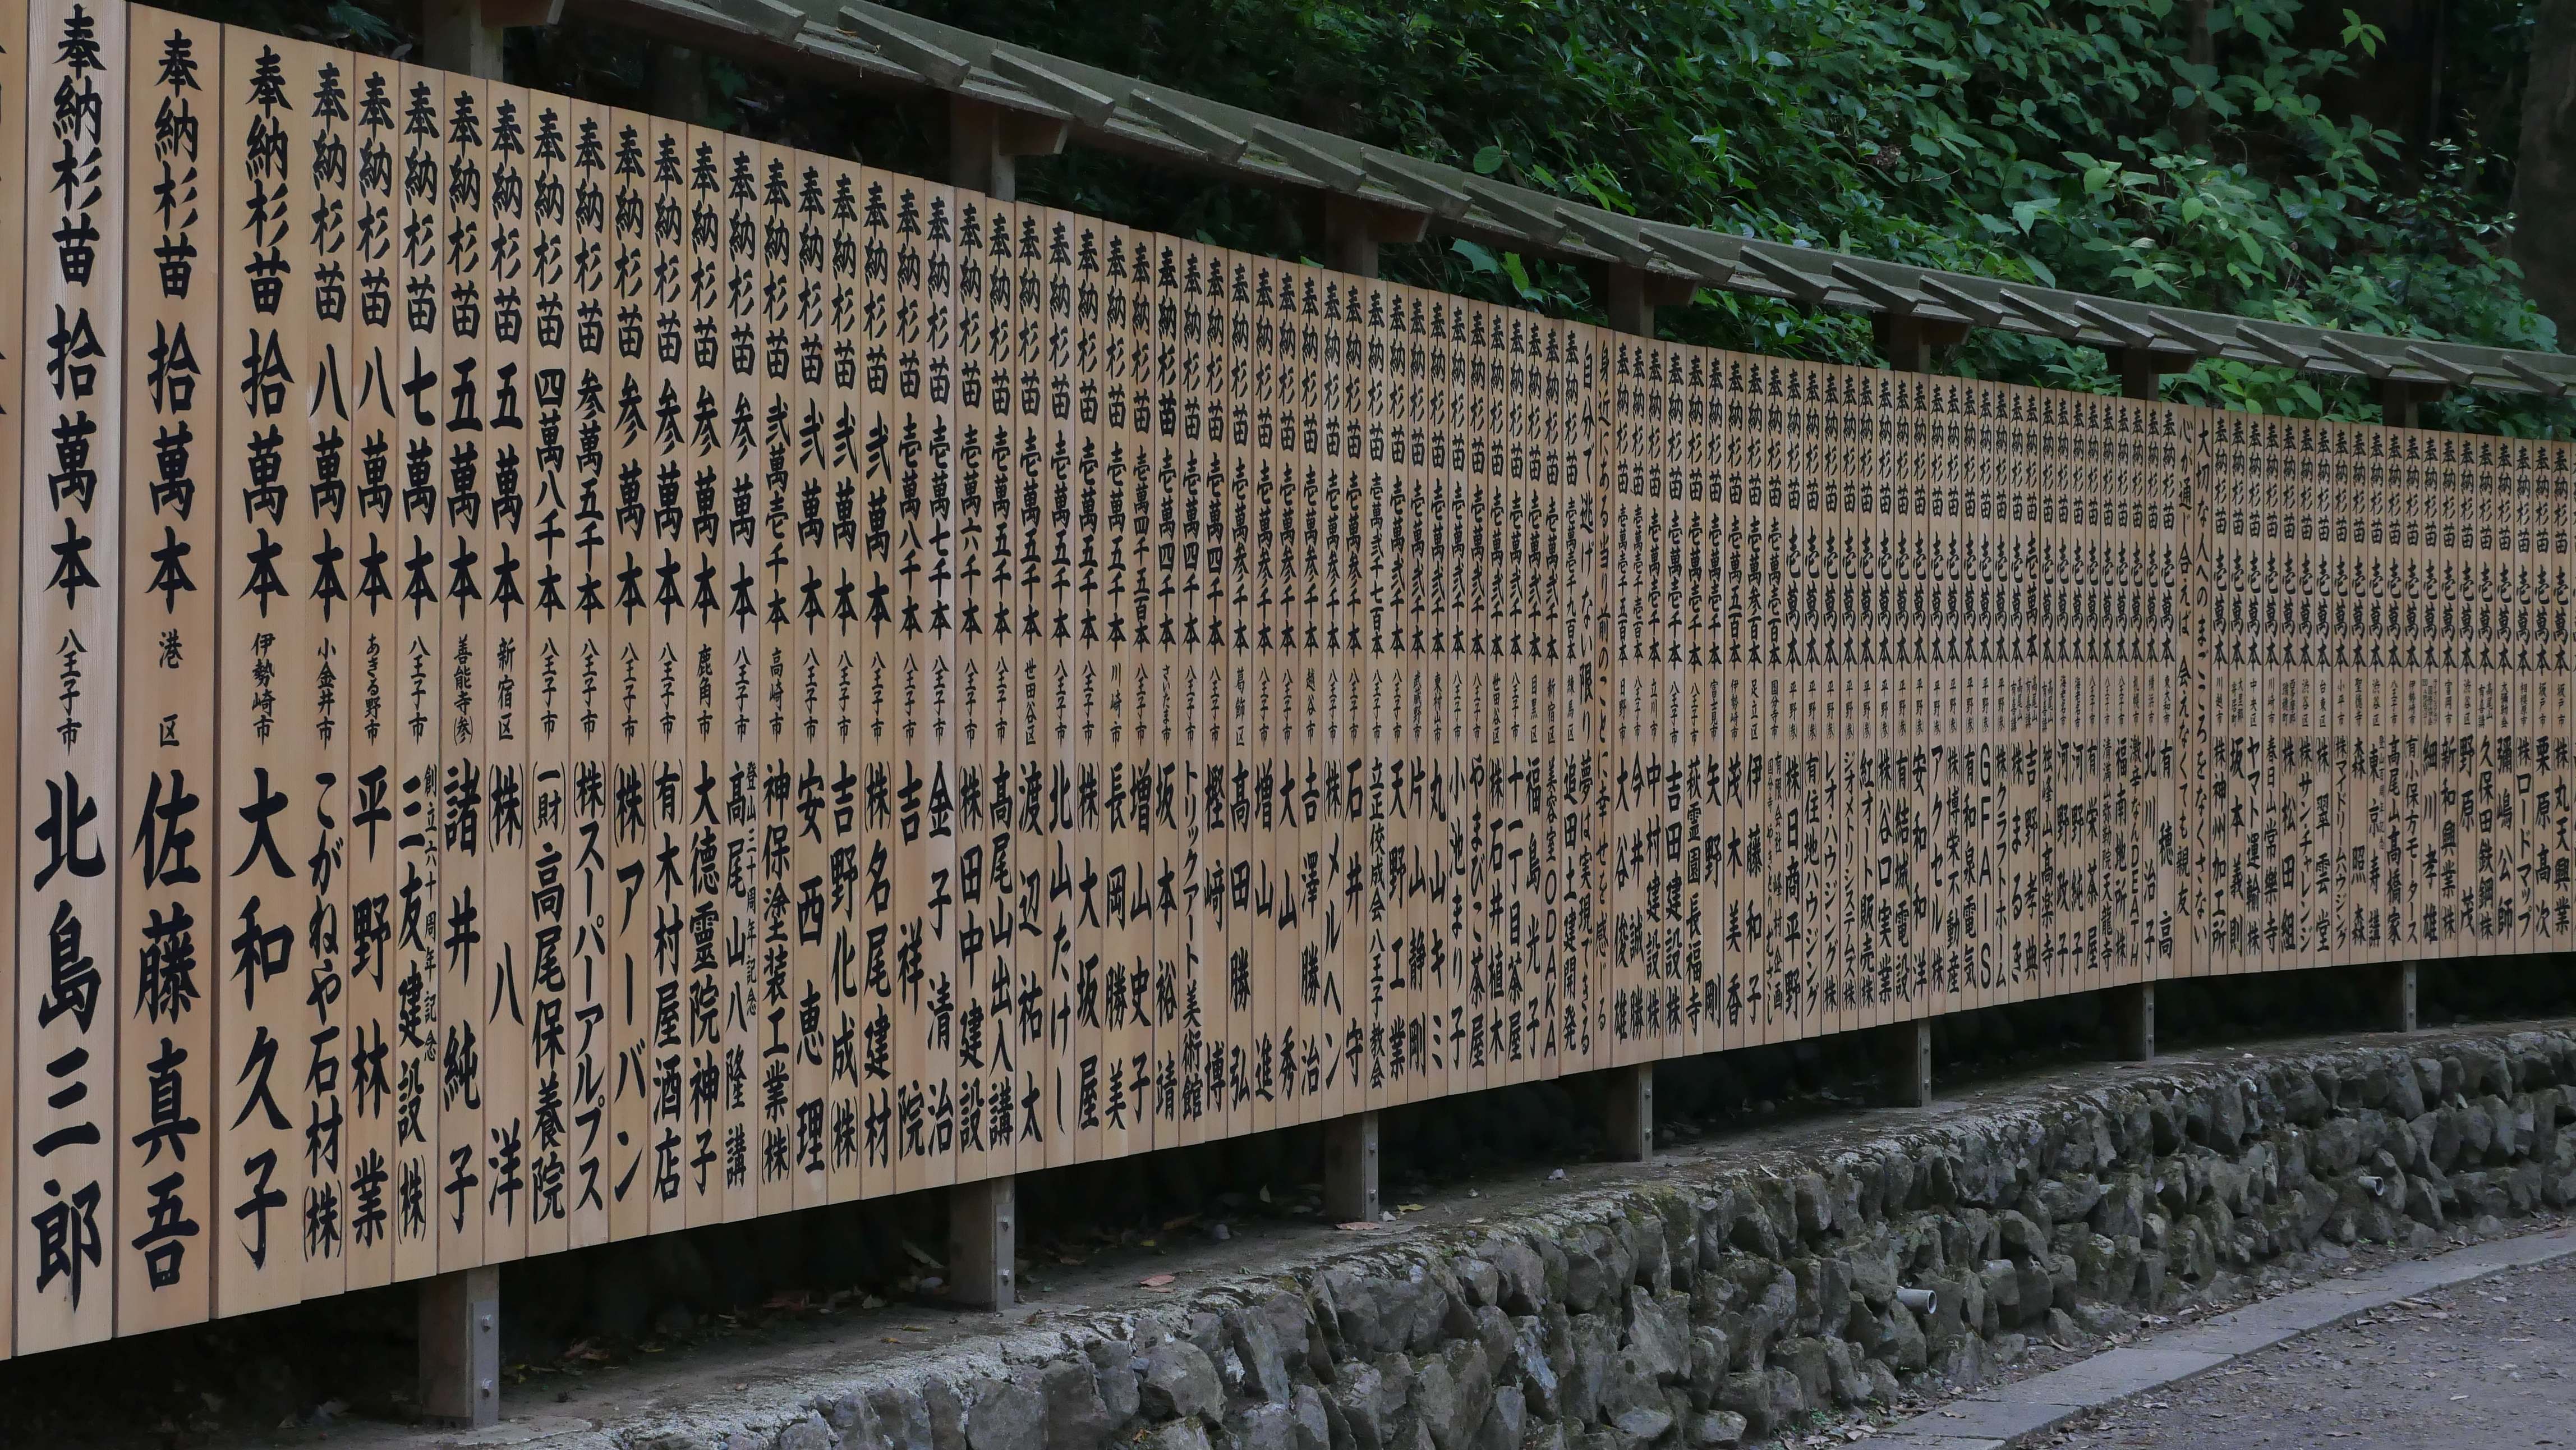 奉納杉苗 拾萬本 八王子市 北島三郎
奉納杉苗 拾萬本 港区 佐藤真吾
奉納杉苗 拾萬本 伊勢崎市 大和久子
奉納杉苗 八萬本 小金井市 こがねや石材(株)
奉納杉苗 八萬本 あきる野市 平野林業
奉納杉苗 七萬本 八王子市 創立六十周年記念 三友建設(株)
奉納杉苗 五萬本 善能寺(参) 諸井純子
奉納杉苗 五萬本 新宿区 (株)八洋
奉納杉苗 四萬八千本 八王子市 (一財)高尾保養院
奉納杉苗 参萬五千本 八王子市 (株)スーパーアルプス
奉納杉苗 参萬本 八王子市 (株)アーバン
奉納杉苗 参萬本 八王子市 (有)木村屋酒店
奉納杉苗 参萬本 鹿角市 大徳靈院神子
奉納杉苗 参萬本 八王子市 登山三十周年記念 高尾山八隆講
奉納杉苗 弐萬壱千本 高崎市 神保塗装工業(株)
奉納杉苗 弐萬本 八王子市 安西恵理
奉納杉苗 弐萬本 八王子市 吉野化成(株)
奉納杉苗 弐萬本 八王子市 (株)名尾建材
奉納杉苗 壱萬八千本 八王子市 吉祥院
奉納杉苗 壱萬七千本 八王子市 金子清治
奉納杉苗 壱萬六千本 八王子市 (株)田中建設
奉納杉苗 壱萬五千本 八王子市 髙尾山出入講
奉納杉苗 壱萬五千本 世田谷区 渡辺祐太
奉納杉苗 壱萬五千本 八王子市 北山たけし
奉納杉苗 壱萬五千本 八王子市 (株)大坂屋
奉納杉苗 壱萬五千本 川崎市 長岡勝美
奉納杉苗 壱萬四千五百本 八王子市 増山史子
奉納杉苗 壱萬四千本 さいたま市 坂本裕靖
奉納杉苗 壱萬四千本 八王子市 トリックアート美術館
奉納杉苗 壱萬四千本 八王子市 樫﨑博
奉納杉苗 壱萬参千本 葛飾区 髙田勝弘
奉納杉苗 壱萬参千本 八王子市 増山進
奉納杉苗 壱萬参千本 八王子市 大山秀
奉納杉苗 壱萬参千本 越谷市 吉澤勝治
奉納杉苗 壱萬参千本 八王子市 (株)メルヘン
奉納杉苗 壱萬参千本 八王子市 石井守
奉納杉苗 壱萬弐千七百本 八王子市 立正佼成会八王子教会
奉納杉苗 壱萬弐千本 八王子市 天野工業
奉納杉苗 壱萬弐千本 武蔵野市 片山静剛
奉納杉苗 壱萬弐千本 東村山市 丸山キミ
奉納杉苗 壱萬弐千本 小平市 小池まり子
奉納杉苗 壱萬弐千本 八王子市 やまびこ茶屋
奉納杉苗 壱萬弐千本 世田谷区 (株)石井植木
奉納杉苗 壱萬弐千本 八王子市 十一丁目茶屋
奉納杉苗 壱萬弐千本 目黒区 福島光子
奉納杉苗 壱萬弐千本 新宿区 美容室ODAKA
奉納杉苗 壱萬壱千九百本 練馬区 追田土建開発
自分で逃げない限り夢は実現できる
身近にある当り前のことに幸せを感じる
奉納杉苗 壱萬壱千五百本 日野市 大谷俊雄
奉納杉苗 壱萬壱千壱百本 八王子市 今井誠勝
奉納杉苗 壱萬壱千本 立川市 中村建設(株)
奉納杉苗 壱萬壱千本 八王子市 吉田建設(株)
奉納杉苗 壱萬壱千本 八王子市 萩霊園長福寺
奉納杉苗 壱萬壱千本 富士見市 矢野剛
奉納杉苗 壱萬五百本 伊勢崎市 茂木美香
奉納杉苗 壱萬参百本 足立区 伊藤和子
奉納杉苗 壱萬壱百本 国分寺市
奉納杉苗 壱萬本 平野(参) (株)日商平野
奉納杉苗 壱萬本 平野(参) (有)住地ハウジング
奉納杉苗 壱萬本 平野(参) レオ・ハウジング(株)
奉納杉苗 壱萬本 平野(参) ジオメトリシステムズ(株)
奉納杉苗 壱萬本 平野(参) 紅オート販売(株)
奉納杉苗 壱萬本 平野(参) (株)谷口実業
奉納杉苗 壱萬本 平野(参) (有)結城電設
奉納杉苗 壱萬本 平野(参) 安和和洋
奉納杉苗 壱萬本 平野(参) アクセル(株)
奉納杉苗 壱萬本 平野(参) (株)博栄不動産
奉納杉苗 壱萬本 平野(参) (有)和泉電気
奉納杉苗 壱萬本 平野(参) GFAIS
奉納杉苗 壱萬本 平野(参) (株)クラフトホーム
奉納杉苗 壱萬本 (株)まるき
奉納杉苗 壱萬本 吉野孝典
奉納杉苗 壱萬本
奉納杉苗 壱萬本 海老名市 河野政子
奉納杉苗 壱萬本 海老名市 河野純子
奉納杉苗 壱萬本 八王子市 (有)栄茶屋
奉納杉苗 壱萬本 八王子市
奉納杉苗 壱萬本 八王子市 福南地所(株)
奉納杉苗 壱萬本 札幌市 激辛なんDEATH
奉納杉苗 壱萬本 横浜市 北川治子
奉納杉苗 壱萬本 東大和市 有穂高
心が通じ合えば 会えなくても親友
大切な人へのまごころをなくさない
奉納杉苗 壱萬本 川越市 (株)神州加工所
奉納杉苗 壱萬本 坂本義則
奉納杉苗 壱萬本 中央区 ヤマト運輸(株)
奉納杉苗 壱萬本 川崎市 春日山常樂寺
奉納杉苗 壱萬本 (株)松田組
奉納杉苗 壱萬本 渋谷区 (株)サンチャレンジ
奉納杉苗 壱萬本 台東区 (株)翠雲堂
奉納杉苗 壱萬本 小平市 (株)マイドリームハウジング
奉納杉苗 壱萬本 森照森
奉納杉苗 壱萬本 渋谷区 東京寿講
奉納杉苗 壱萬本 八王子市 髙尾山髙橋家
奉納杉苗 壱萬本 伊勢崎市 (有)小保方モータース
奉納杉苗 壱萬本 細川孝雄
奉納杉苗 壱萬本 富岡市 新和興業(株)
奉納杉苗 壱萬本 渋谷区 野原茂
奉納杉苗 壱萬本 久保田鉄鋼(株)
奉納杉苗 壱萬本 彌嶋公師
奉納杉苗 壱萬本 相模原市 (株)ロードマップ
奉納杉苗 壱萬本 坂戸市 栗原髙次
奉納杉苗 壱萬本 坂戸市 (株)丸天興業